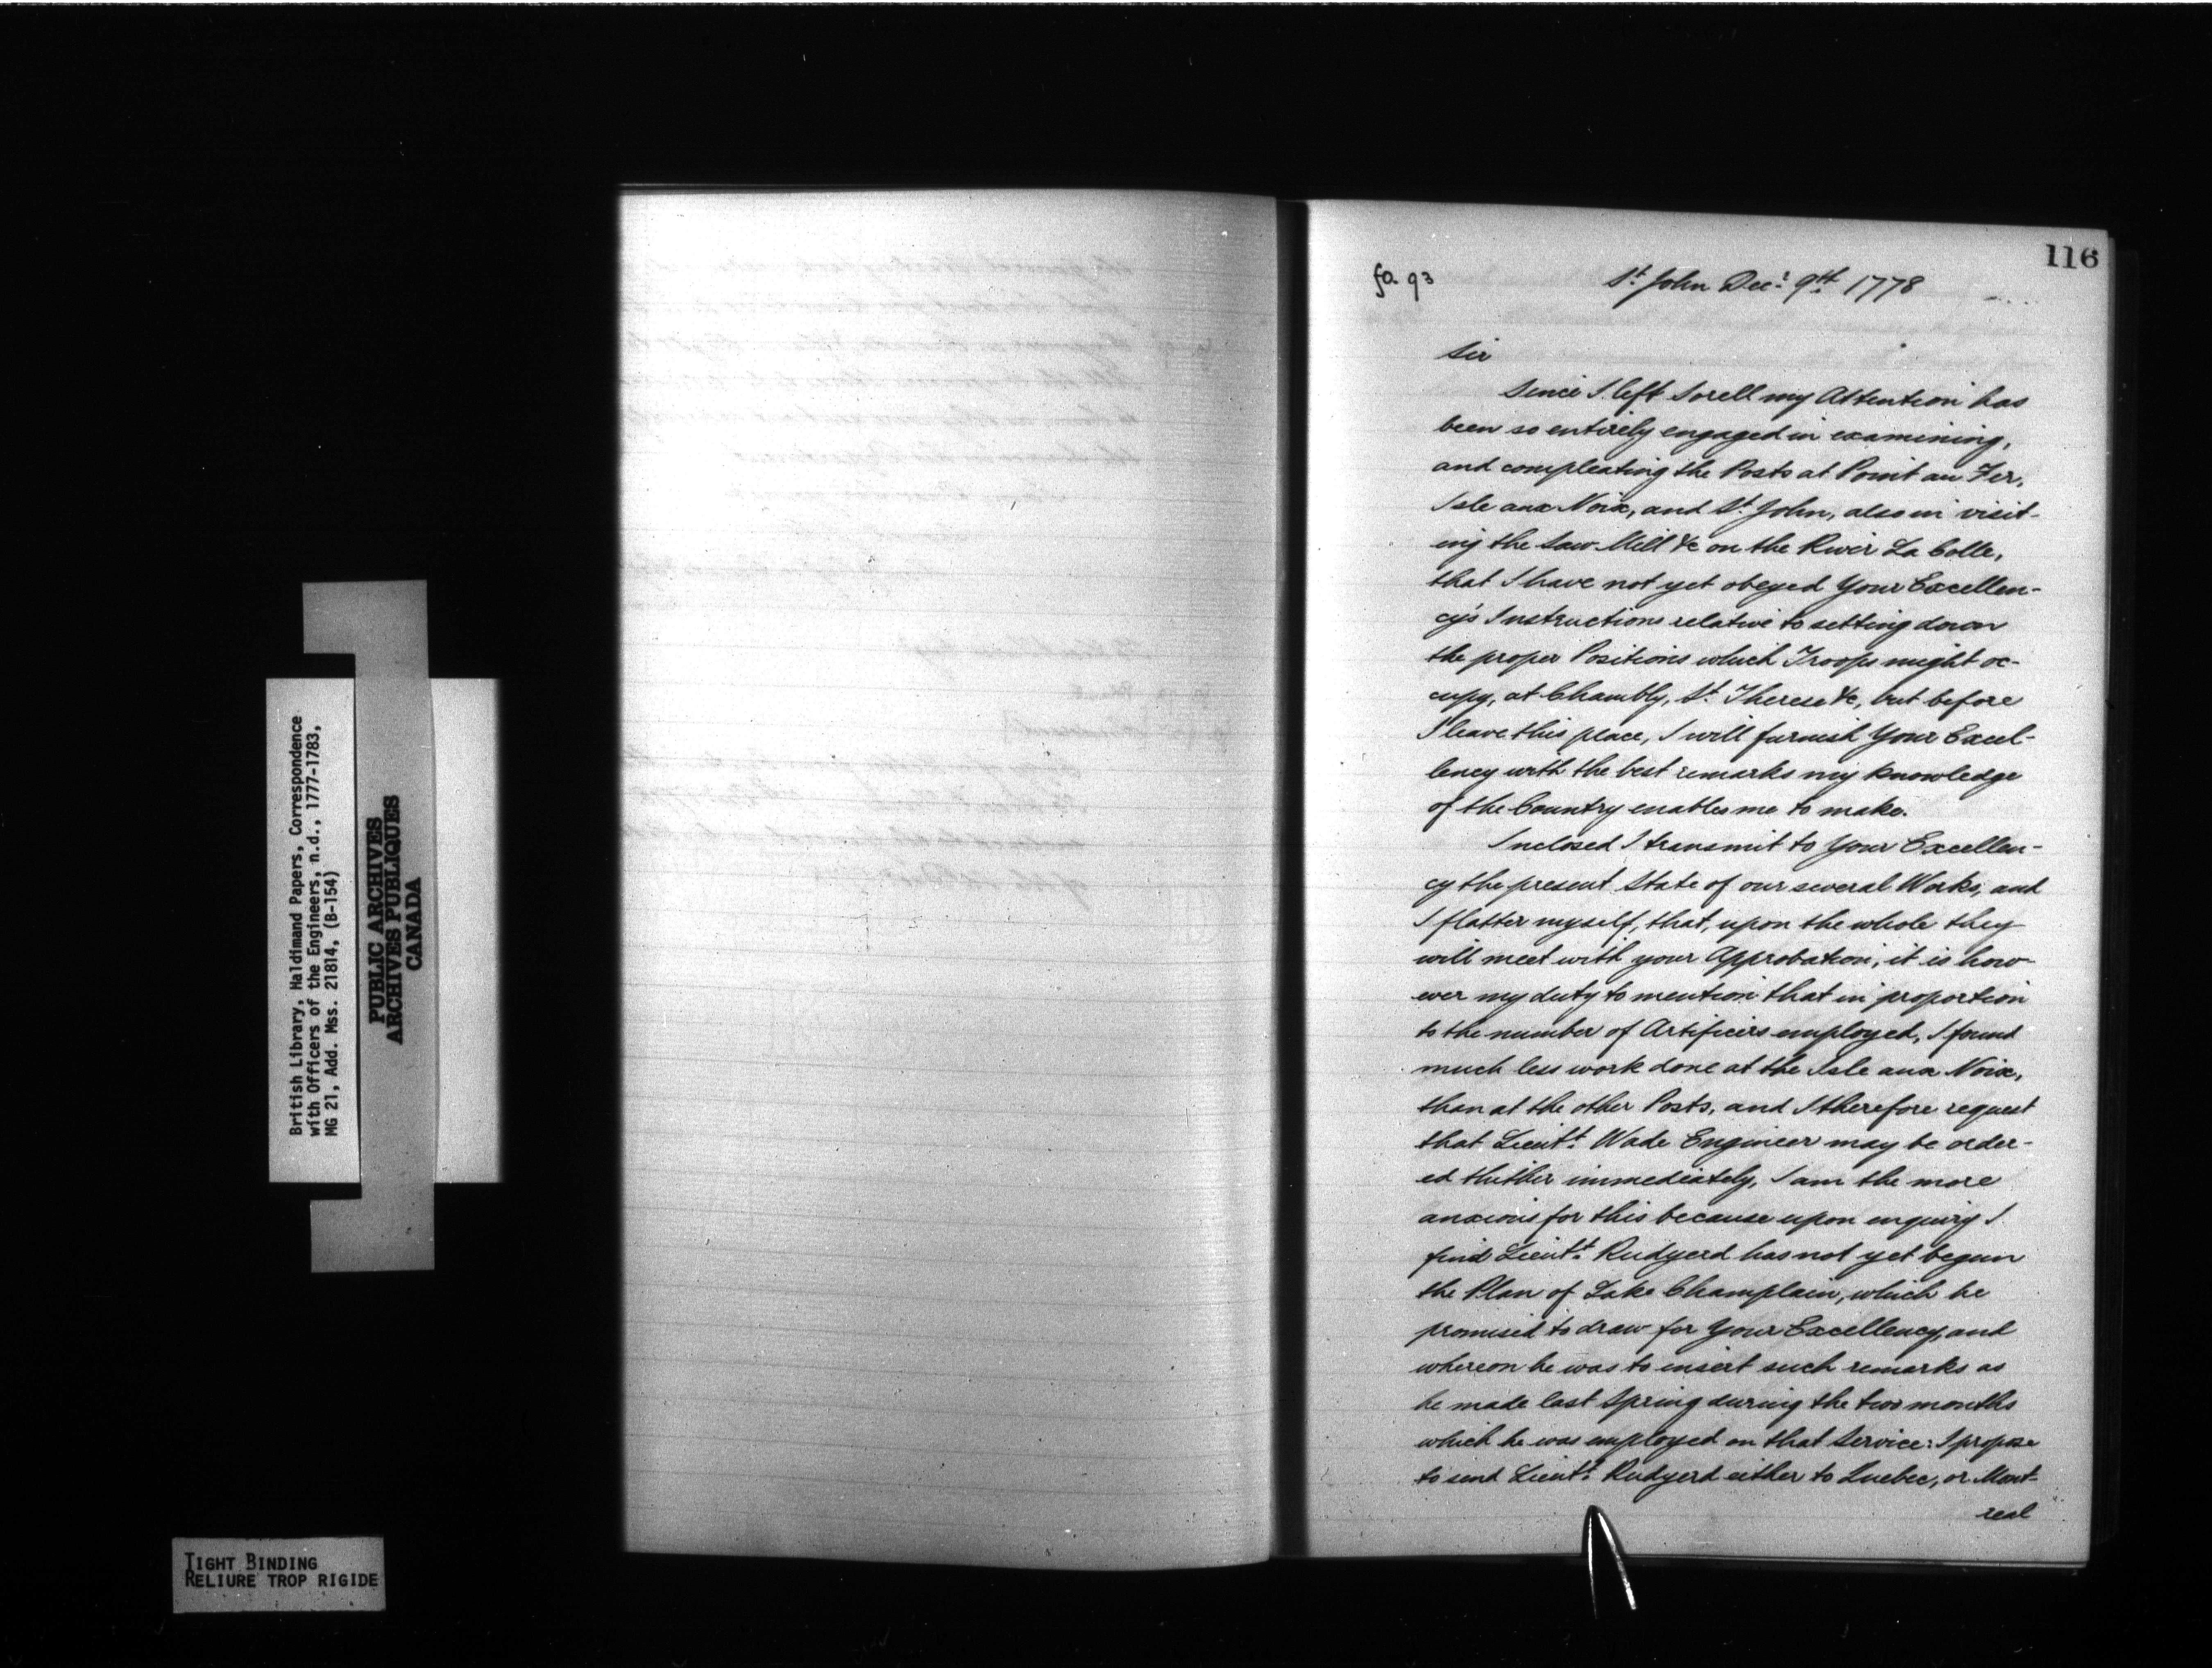 British Library, Haldimand Papers, Correspondence
with Officers of the Engineers, n.d., 1777-1783,
MG 21, Add. Mss. 21814, (B-154)
PUBLIC ARCHIVES
ARCHIVES PUBLIQUES
CANADA
TIGHT BINDING
RELIURE TROP RIGIDE
116
fo. 93
St. John Decr. 9th. 1778
Sir
Since I left Sorell my Attention has
been so entirely engaged in examining,
and compleating the Posts at Point au Fer,
Isle aux Noix, and St. John, also in visit-
ing the Saw Mill &c on the River La Colle,
that I have not yet obeyed Your Excellen-
cy's Instructions relative to setting down
the proper Positions which Troops might oc-
cupy, at Chambly, St. Therese &c, but before
I leave this place, I will furnish Your Excel-
lency with the best remarks my knowledge
of the Country enables me to make.
Inclosed I transmit to Your Excellen-
cy the present State of our several Works, and
I flatter myself, that, upon the whole they
will meet with your Approbation; it is how-
ever my duty to mention that in proportion
to the number of Artificers employed, I found
much less work done at the Isle aux Noix,
than at the other Posts, and I therefore request
that Lieutt. Wade Engineer may be order-
ed thither immediately, I am the more
anxious for this because upon enquiry I
find Lieutt. Rudyerd has not yet begun
the Plan of Lake Champlain, which he
promised to draw for Your Excellency, and
whereon he was to insert such remarks as
he made last Spring during the two months
which he was employed on that Service: I propose
to send Lieutt. Rudyerd either to Quebec, or Mont-
real